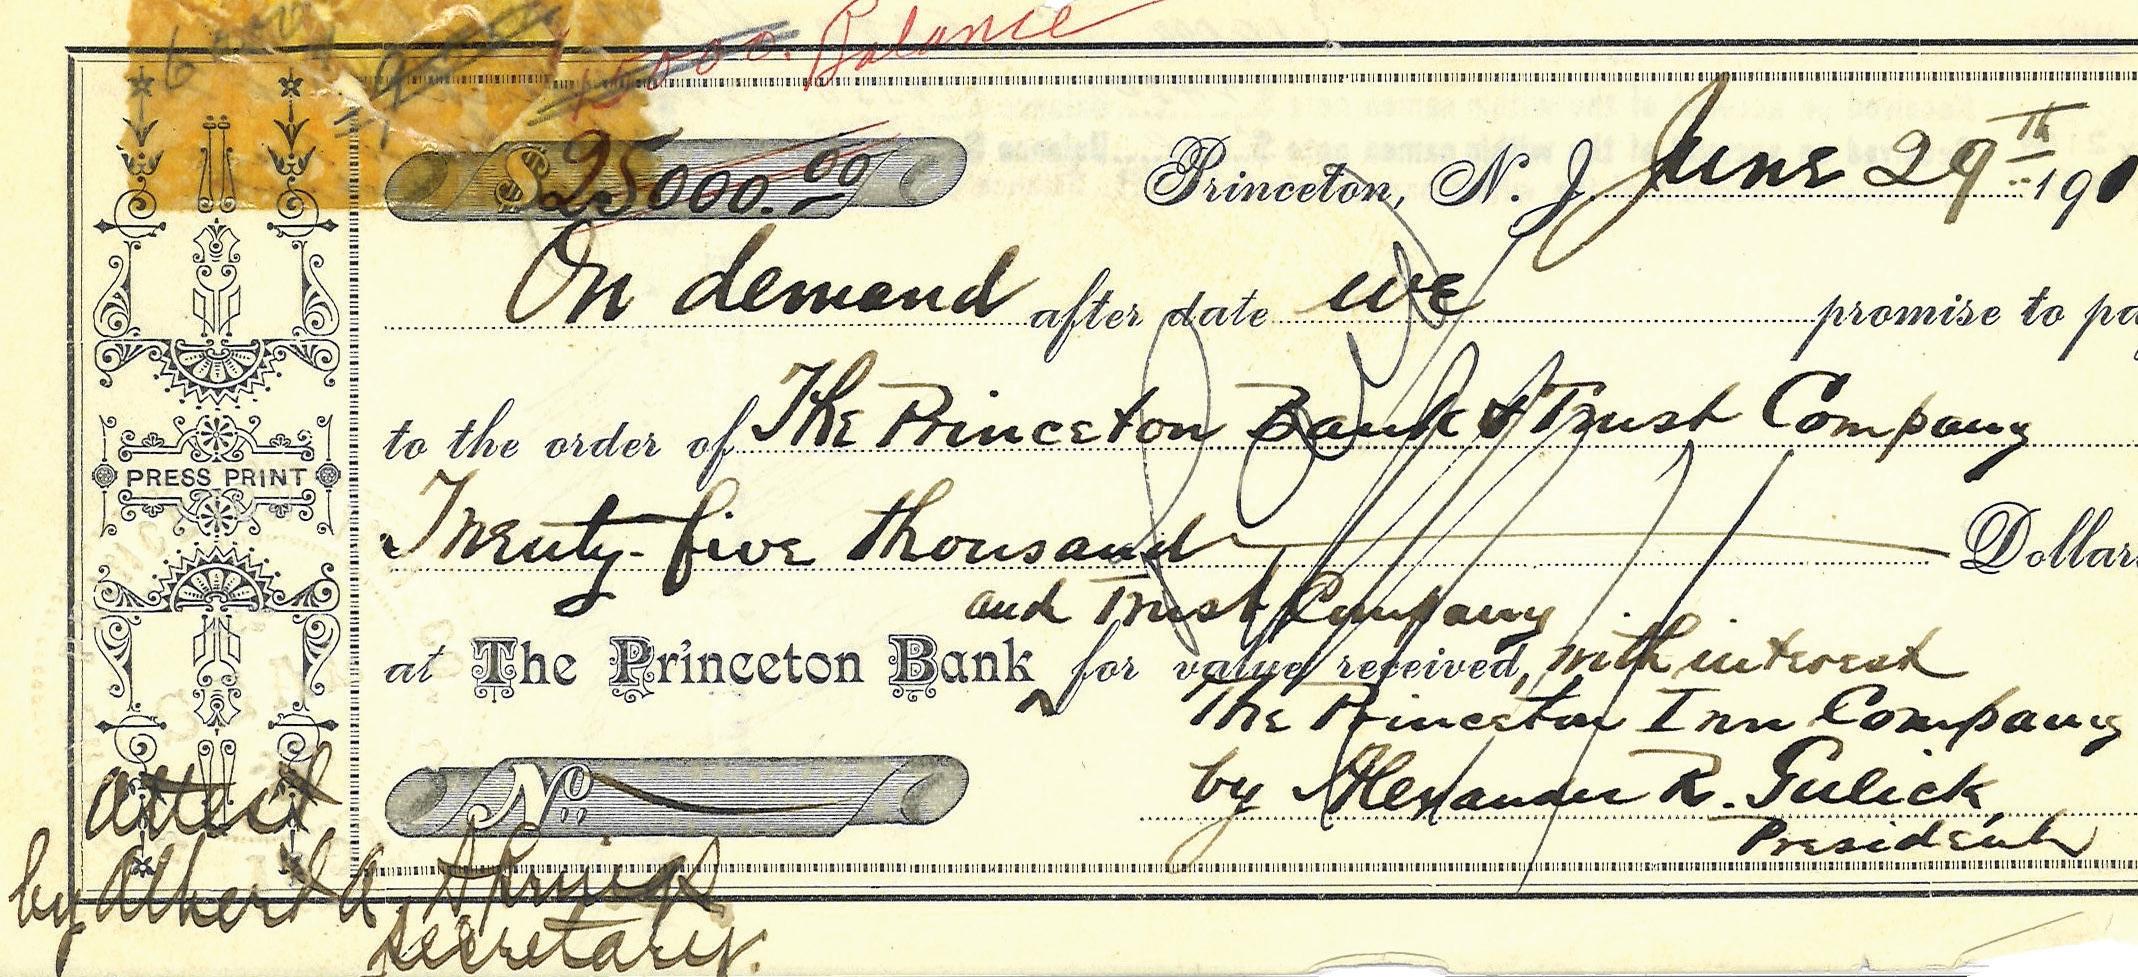 5000. Balance
$25000.00
Princeton, N. J. June 29th 190
On demand after date we promise to pa
to the order of The Princeton Bank & Trust Company
Twenty-five thousand Dollars
and Trust Company
at The Princeton Bank ^ for value received, with interest
The Princeton Inn Company
by Alexander R. Gulick
President
No.
PRESS PRINT
attest
by Albert A. Springs
Secretary.